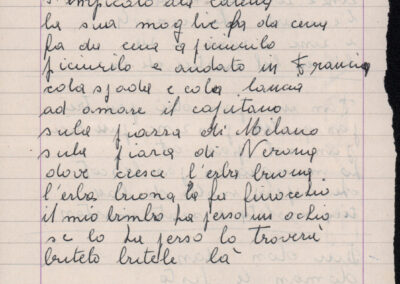 s'impicato ala catena
la sua moglie fa da cena
fa da cena a picurilo
picurilo e andato in Francia
cola spada e cola lancia
ad amare il capitano
sula piazza di Milano
sula piaza di Verona
dove cresce l'erba buona
l'erba buona la fa finocchio
il mio bimbo ha perso un ochio
se lo ha perso lo troverà
buteto butele là